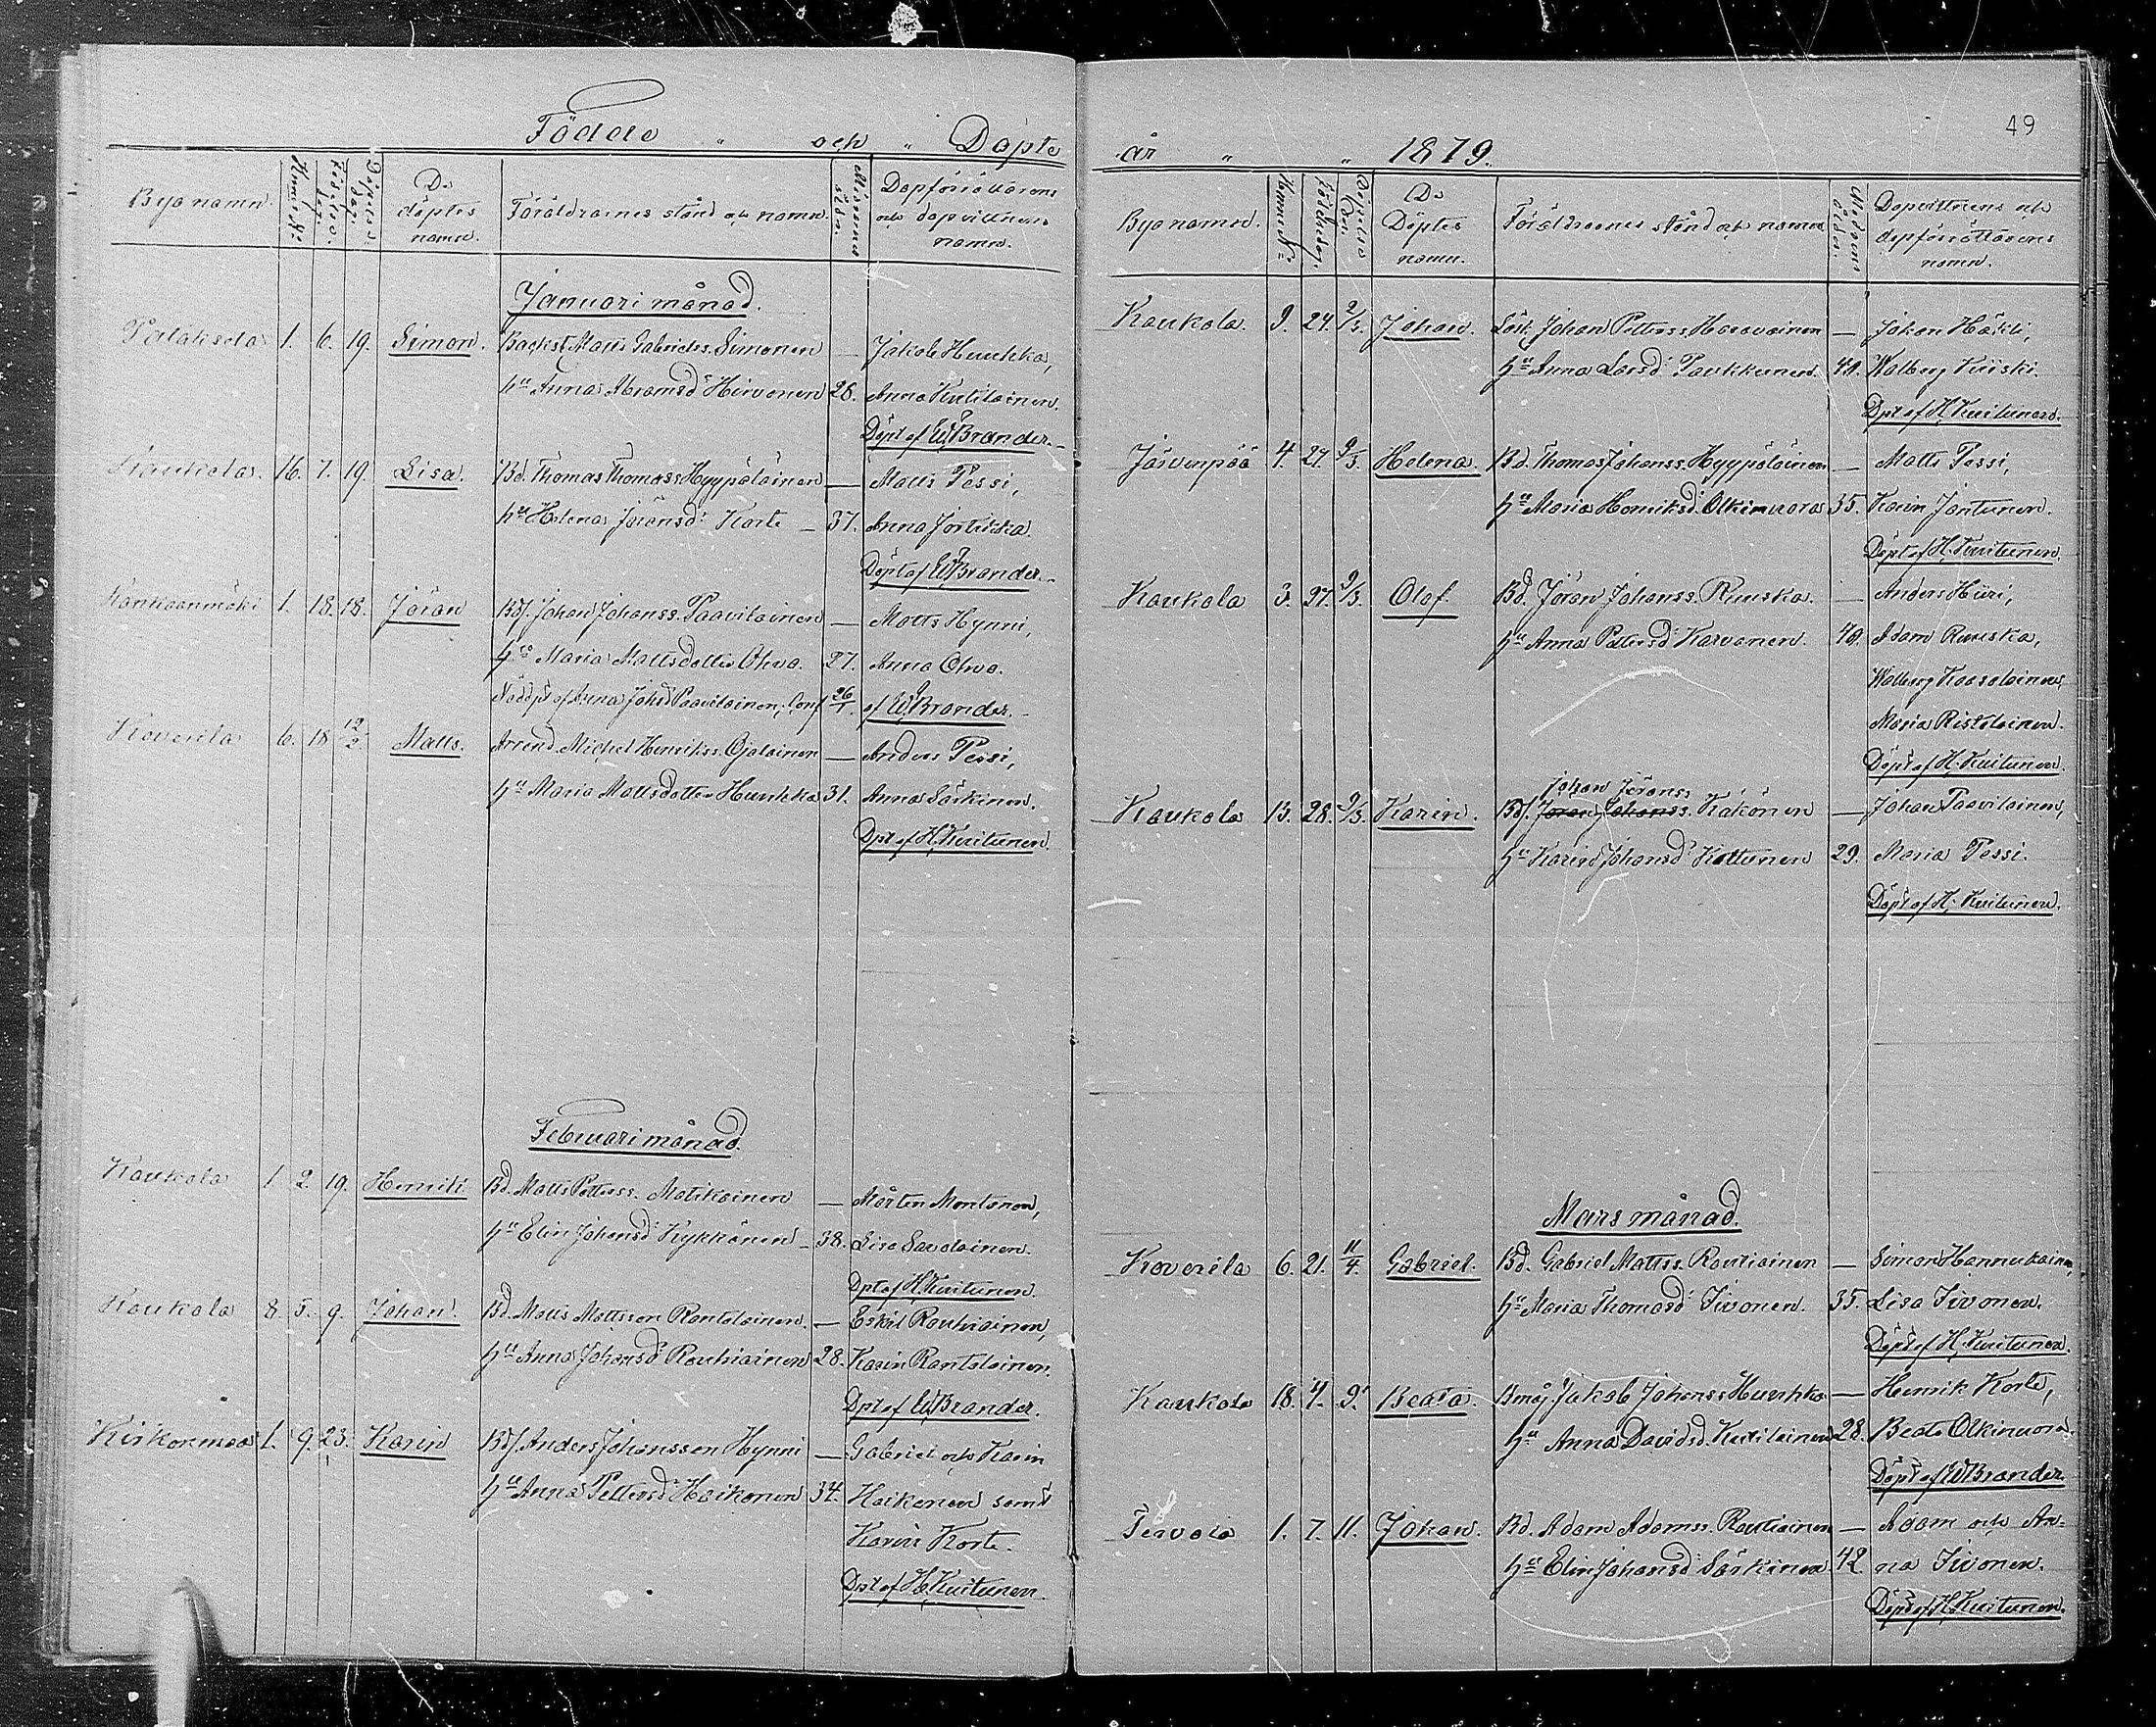 Födde och Döpte
Bya namn. Hemm. №. Födelsedag. Döpelsedag. De döptes namn. Föräldrarnes stånd och namn. Modrens ålder. Dopförrättarens och dopvittnens namn.
Januari månad.
1. 6. 19. Simon. Backst. Matts Gabrielss. Simonen — Jakob Huuhka,
hu Anna Abramsdr Hirvonen 28. Anna Kutilainen.
Döpt af W Brander.
Kaukola. 16. 7. 19. Lisa. Bd. Thomas Thomass Hyypöläinen — Matts Pessi,
hu Helena Jöransdr Korte — 37. Anna Jortikka.
Döpt af W Brander.
Kankaanmäki 1. 18. 18. Jöran Bdf. Johan Johanss. Paavilainen — Matts Hynni,
hu Maria Mattsdotter Ohvo. 27. Anna Ohvo.
Nöddpt af Anna Johsd Paavilainen; Conf 26/1. af W Brander.
Koverila 6. 18 12/2. Matts. Arrend. Michel Henrikss. Ojalainen — Anders Pessi,
hu Maria Mattsdotter Huuhka 31. Anna Särkinen.
Dpt af H. Kuitunen.
Februari månad.
Kaukola 1 2. 19. Henrik Bd. Matts Petterss. Matikainen — Mårten Montonen,
hu Elin Johansdr Kykkänen — 38. Lisa Savolainen.
Dpt af H. Kuitunen.
Kaukola 8. 5. 9. Johan. Bd. Matts Mattsson Rantalainen. — Eskil Rouhiainen,
hu Anna Johansdr Rouhiainen 28. Karin Rantalainen.
Dpt af W Brander.
Kirkonmaa 1. 9. 23. Karin Bdf. Anders Johansson Hynni — Gabriel och Karin
hu Anna Pettersdr Haikonen 34. Haikonen samt
Karin Korte.
Dpt af H. Kuitunen.
år 1879.
49
Bya namn. Hemm. №. Födelsedag. Döpelsedag. De Döptes namn. Föräldrarnes stånd och namn Modrens ålder. Dopvittnens och dopförrättarens namn.
Kaukola. 9. 24. 2/3. Johan. Lösk. Johan Petterss. Haravainen — Johan Häkli,
hu Anna Larsdr Paukkunen. 40. Walborg Kiiski.
Dpt af H. Kuitunen.
Järvenpää 4. 27. 9/3. Helena. Bd. Thomas Johanss. Hyypöläinen — Matts Pessi,
hu Maria Henriksdr Olkinuora 35. Karin Jantunen.
Döpt af H. Kuitunen.
Kaukola 3. 27. 9/3. Olof. Bd. Jöran Johanss. Ruuska. — Anders Hiiri,
hu Anna Pettersdr Karvonen. 40. Adam Ruuska,
Walborg Kaasalainen,
Maria Ristolainen.
Döpt af H. Kuitunen.
Johan Jöranss
Kaukola 13. 28. 9/3. Karin. Bdf. Jöran Johanss. Käkönen — Johan Paavilainen,
hu Karin Johansdr Kottunen 29. Maria Pessi.
Döpt af H. Kuitunen.
Mars månad.
Koverila 6. 21. 11/4. Gabriel. Bd. Gabriel Mattss. Rautiainen — Simon Hannukainen,
hu Maria Thomasdr Iivonen. 35. Lisa Iivonen.
Döpt af H. Kuitunen.
Kaukola 18. 4. 9. Beata. Bmåg. Jakob Johanss Huuhka — Henrik Korte,
hu Anna Davidsd. Kutilainen 28. Beata Olkinuora.
Döpt af W Brander
1. 7. 11. Johan. Bd. Adam Adamss. Rautiainen — Adam och An-
hu Elin Johansdr Särkinen. 42. na Iivonen.
Döpt af H. Kuitunen.